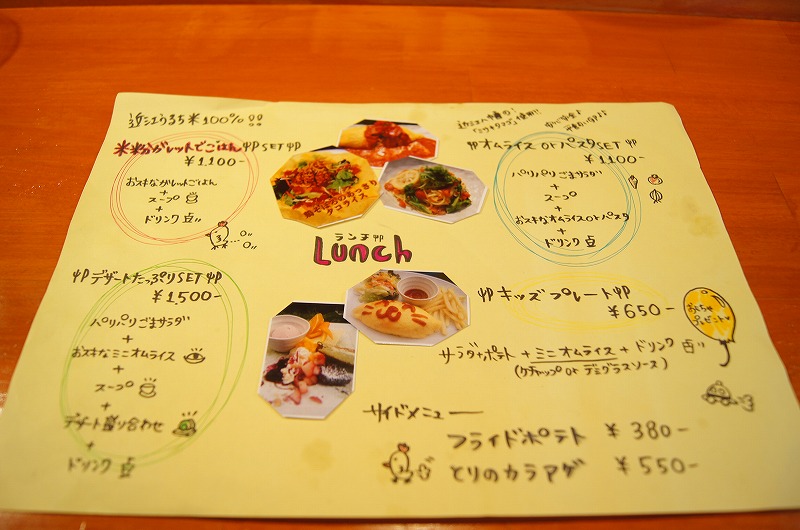 近江うるち米100%!!
米粉ガレットでごはんSET
¥1,100-
お好きなガレットごはん
+
スープ
+
ドリンク
オムライス or パスタSET
¥1,100-
パリパリごまサラダ
+
スープ
+
お好きなオムライスorパスタ
+
ドリンク
タコライス
ランチ
Lunch
デザートたっぷりSET
¥1,500-
パリパリごまサラダ
+
お好きなミニオムライス
+
スープ
+
デザート盛り合わせ
+
ドリンク
キッズプレート
¥650-
おもちゃ
プレゼント
サラダ+ポテト + ミニオムライス + ドリンク
(ケチャップ or デミグラスソース)
サイドメニュー
フライドポテト ¥380-
とりのカラアゲ ¥550-